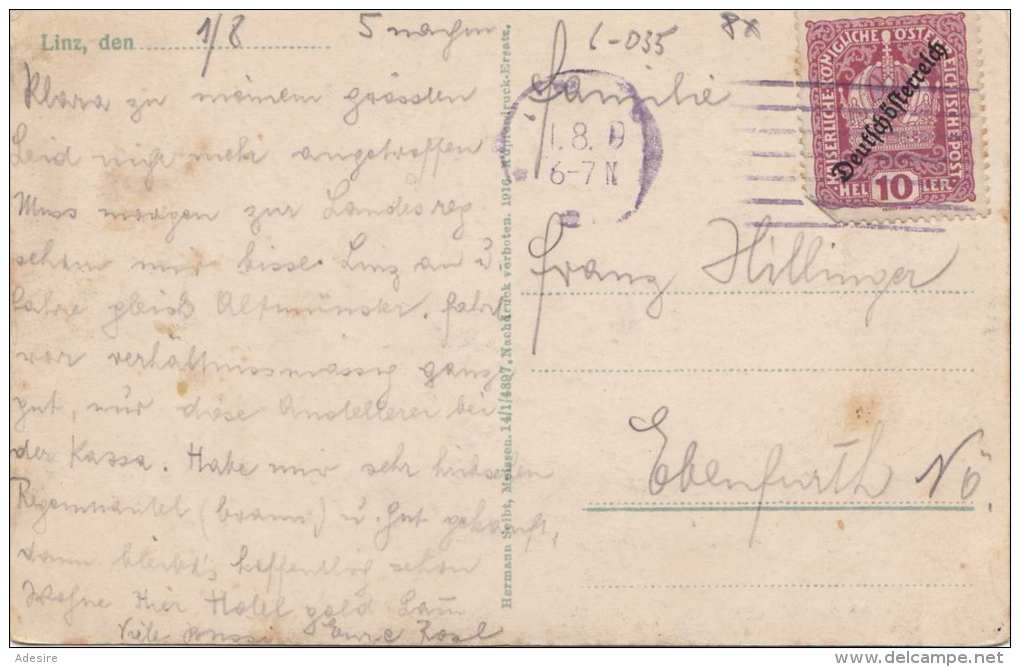 Linz, den 1/8 5 nachm
Klara zu meinem grössten
Leid nicht mehr angetroffen
Muss morgen zur Landesreg
schau mir bissl Linz an u
fahre gleich Altmünster. Fahrt
war verhältnissmässig ganz
gut, nur diese Anstellerei bei
der Kassa. Habe mir sehr hübschen
Regenmantel (braun) u. Hut gekauft,
dann bleibt's hoffentlich schön
Wohne hier Hotel gold
Viele Bussi Eure Rosl
Hermann Seibt, Meissen. 14/1/4897. Nachdruck verboten. 1916. Kupferdruck-Ersatz.
L-035 8x
1.8.
6-7 N
KAISERLICHE KÖNIGLICHE ÖSTERREICHISCHE POST
Deutschösterreich
HELLER 10
Familie
Franz Hillinger
Ebenfurth NÖ
Adesire
delcampe.net